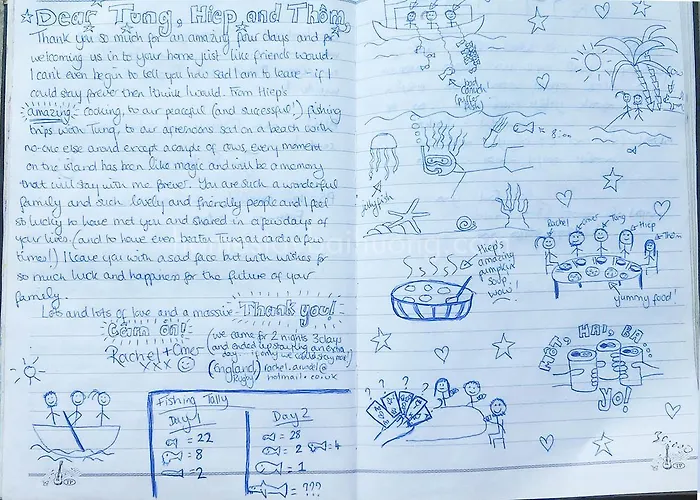 Dear Tung, Hiep and Thơm,
Thank you so much for an amazing four days and for
welcoming us in to your home just like friends would.
I can't even begin to tell you how sad I am to leave - if I
could stay forever then I think I would. From Hiep's
amazing cooking, to our peaceful (and successful!) fishing
trips with Tung, to our afternoons sat on a beach with
no-one else around except a couple of cows, every moment
on the island has been like magic and will be a memory
that will stay with me forever. You are such a wonderful
family and such lovely and friendly people and I feel
so lucky to have met you and shared in a few days of
your lives. (and to have even beaten Tung at cards a few
times!) I leave you with a sad face but with wishes for
so much luck and happiness for the future of your
family.
Lots and lots of love and a massive Thank you!
Cảm ơn!
Rachel + Omer
xxx
(we came for 2 nights 3 days
and ended up staying an extra
day... if only we could stay
(England)
Rugby
hotmail.co.uk
Fishing Tally
Day 1
= 22
= 8
= 2
Day 2
= 28
= 2
= 4
= 1
= ???
good
catch!
(puffer
fish)
jellyfish
Hiep's
amazing
pumpkin
soup
wow!
Rachel
Omer
Tung
Hiep
Thơm
yummy food!
MỘT, HAI, BA...
YO!
? ? ? ?